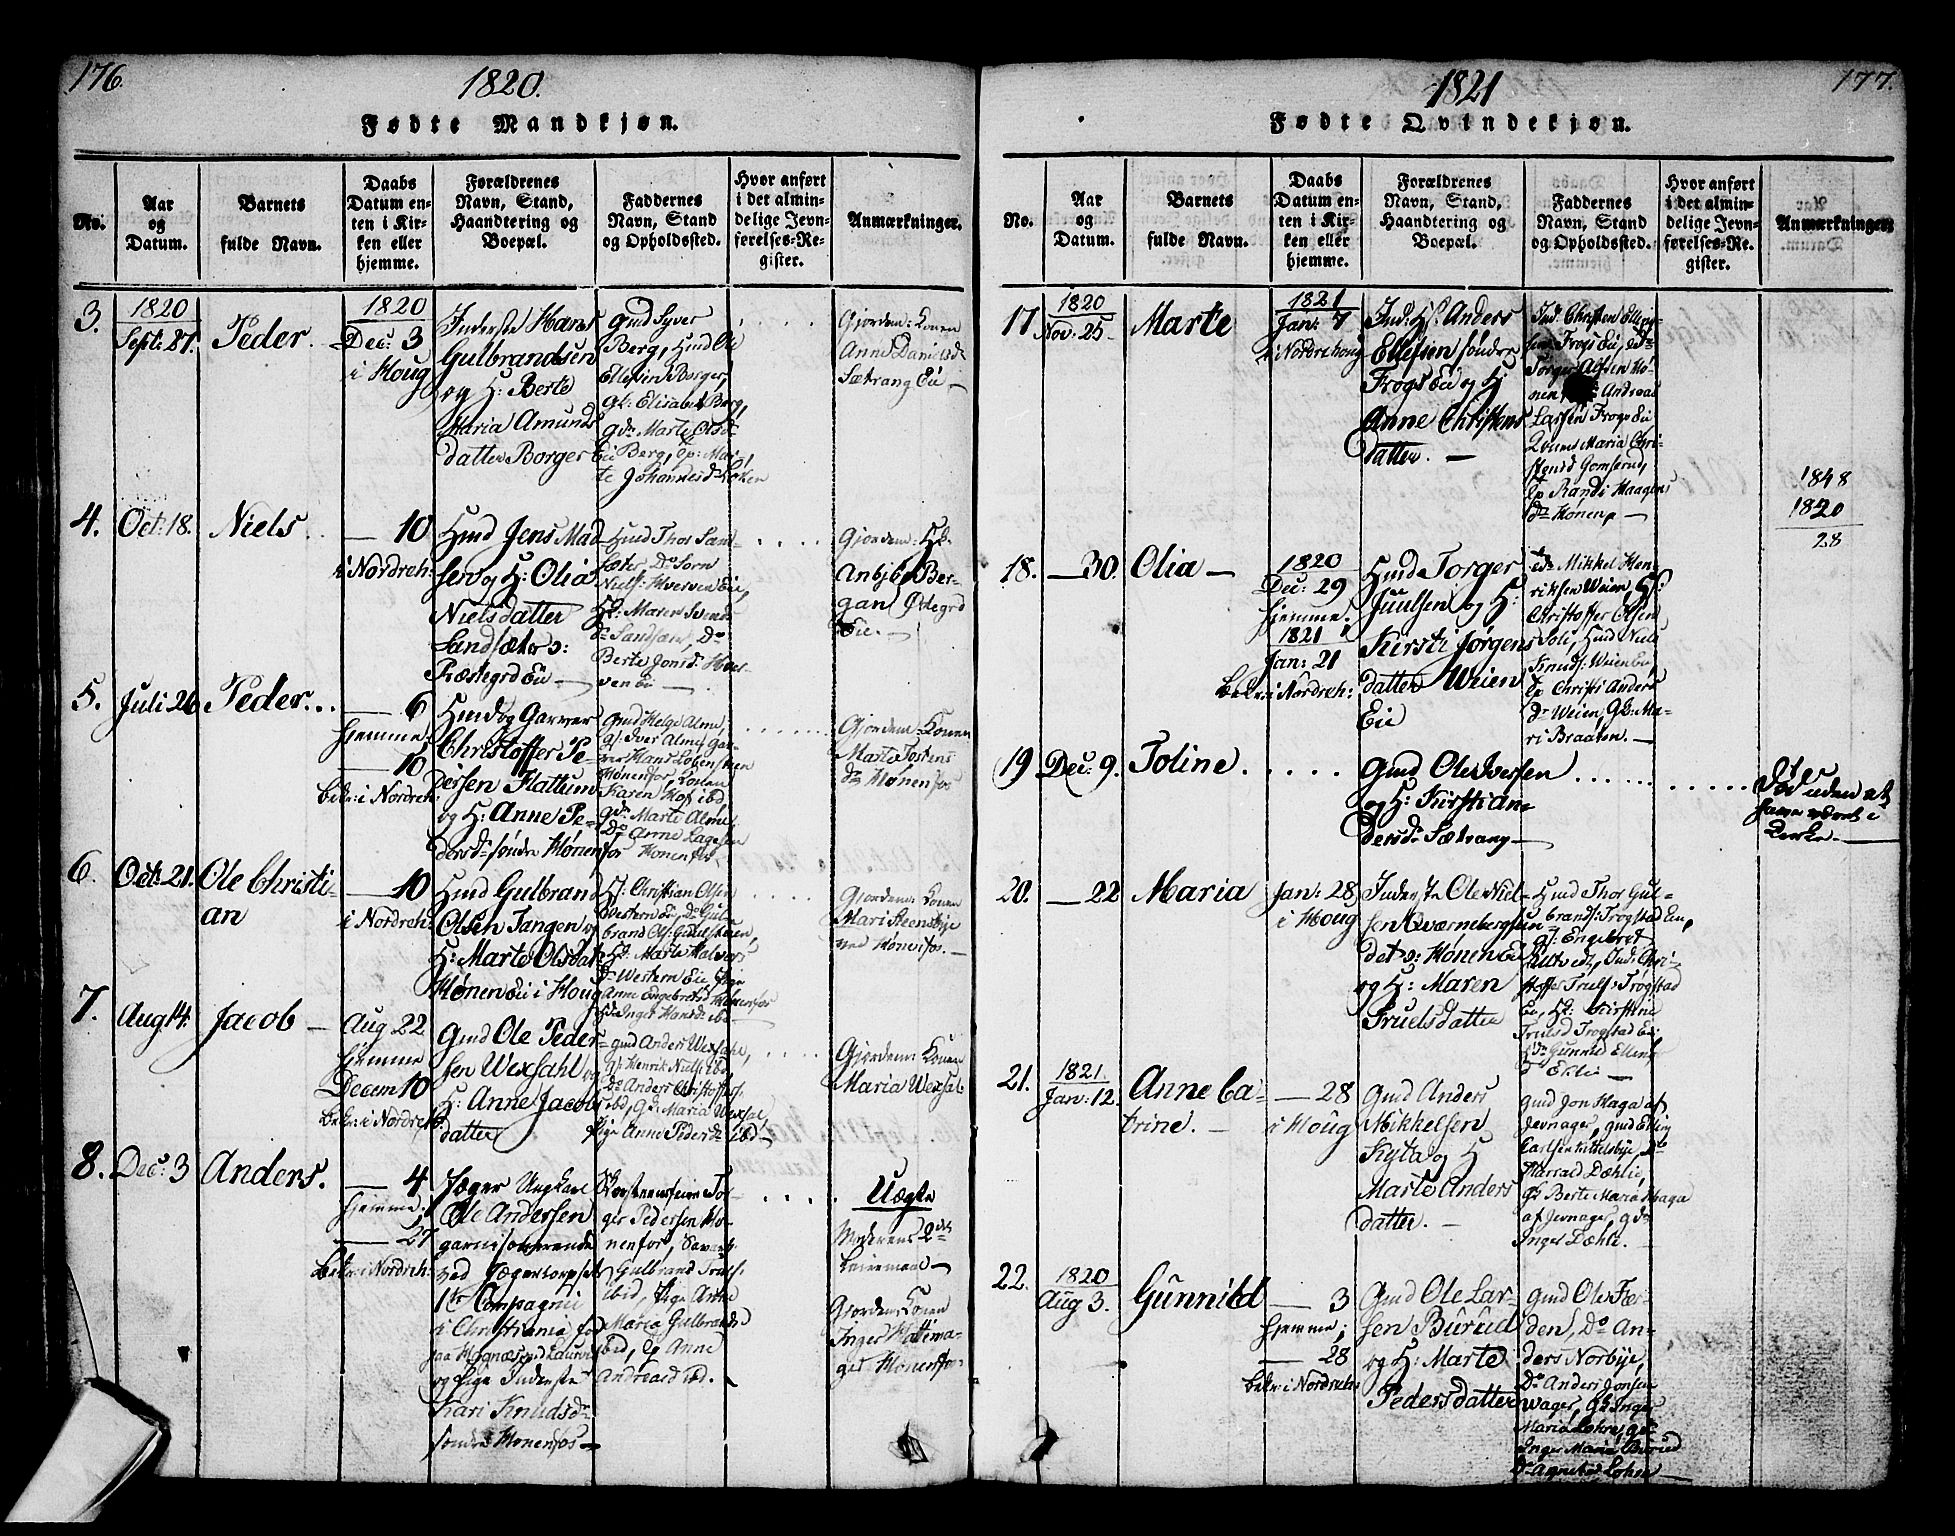 176.
1820.
Fødte Mandkjøn.
No.
Aar
og
Datum.
Barnets
fulde Navn.
Daabs
Datum en-
ten i Kir-
ken eller
hjemme.
Forældrenes
Navn, Stand,
Haandtering og
Boepæl.
Faddernes
Navn, Stand
og Opholdssted.
Hvor anført
i det almin-
delige Jevn-
førelses-Re-
gister.
Anmærkninger.
3.
1820
Sept: 27.
Peder.
1820
Dec: 3
i Houg
Inderste Hans
Gulbrandsen
og H: Berte
Maria Amunds
datter Borger Eie
Gmd Syver
Berg, Hmd Ole
Ellefsen Borger,
gk: Elisabet Berg,
gdr Marte Olsdr
Berg, ep: Mar-
te Johannesd
Gjordem: Konen
Anne Danielsdr
Sætrang Eie —
4.
Oct: 18.
Niels
— 10
i Nordreh:
Hmd Jens Mad-
sen og H: Olia
Nielsdatter
Sandsæter v:
Præstegrd Eie —
Hmd Thor Sand-
sæter, Do Sorn
Niels: Hverven Eie,
Hk: Maren Svend
dr Sandsæt, Do
Berte Jonsdr Hver-
ven Ei —
Gjordem: Hk:
Anbjør Ber-
gan Ødegrd
Eie. —
5.
Juli 26
Peder...
— 6
hjemme:
— 10
bekr: i Nordreh:
Hmd og Garver
Christoffer Pe-
dersen Flattum
og H: Anne Pe-
dersdr søndre Hønenfos
Gmd Helge Alme,
gf: Iver Alme, Gar-
ver Hans Lobensteen
Hønenfos, Konen
Karen Hof ibd,
gdr Marte Alme
Do Anne Lagesen
Hønenfos
Gjordem: Konen
Marte Tostens
dr Hønenfos
6.
Oct: 21.
Ole Christi-
an
— 10
i Nordreh:
Hmd Gulbrand
Olsen Tangen og
H: Marte Olsdat
Hønen Eie i Houg
Hf: Christian Olsen
Western Ei, Do Gul-
brand Ols:
Hk: Marte Halvors
dr Western Eie, Pige
Anne Engebretsd Hønenfos
Inger Hansdr ibd —
Gjordem: Konen
Mari Steensbye
ved Hønenfos. —
7.
Aug 14.
Jacob —
Aug 22
hjemme
Decem 10
bekr: i Nordreh.
Gmd Ole Peder-
sen Wexsahl og
H: Anne Jacobs
datter
Gmd Anders Wexsahl,
gf: Henrik Niels: ibd,
Do Anders Christoffers:
ibd, Gk: Maria Wexsal,
Pige Anne Pedersdr ibd —
Gjordem: Konen
Maria Wexsal
8.
Dec: 3
Anders.
— 4
hjemme:
— 27
bekr: i Nordreh:
Jæger Ungkarl
Ole Andersen
garnisonerende
ved Jægercorpset
1te Compagnie
i Christiania fød
paa Hognæs ved Laurvig
og Pige Inderste
Kari Knudsdr
søndre Hønenfos —
Skorsteensfeier Tor-
ger Pedersen Hø-
nenfos,
Gulbrand Truls:
ibid, Pige Anne
Maria Gulbrands
ibid, Ep Anne
Andreasd ibd.
Uægte
Moderens 2det
Leiermaal —
Gjordem: Konen
Inger Hattema-
ger Hønenfos.
177.
1821
Fødte Qvindekjøn.
No.
Aar
og
Datum.
Barnets
fulde Navn.
Daabs
Datum en-
ten i Kir-
ken eller
hjemme.
Forældrenes
Navn, Stand,
Haandtering og
Boepæl.
Faddernes
Navn, Stand
og Opholdssted.
Hvor anført
i det almin-
delige Jevn-
førelses-Re-
gister.
Anmærkninger
17.
1820
Nov: 25.
Marte
1821
Jan: 7
i Nordrehoug
Ind: Hf. Anders
Ellefsen søndre
Frogs Eie og H:
Anne Christens
datter. —
Ind: Christen Ellef-
sen Frogs Eie, do
Torger Alfsen Hø-
nen, Andreas
Larsen Frogs Eie
Konen Maria Chri-
stensd Gomserud,
Ep Randi Haagens
dr Hønen —
1848
1820
28
18.
— 30.
Olia —
1820
Dec: 29
hjemme.
1821
Jan: 21
bekr: i Nordreh:
Hmd Torger
Juulsen og H:
Kirsti Jørgens
datter Weien
Eie
Mikkel Hen-
riksen Weien, Gf:
Christoffer Olsen
Soli, Hmd Niels
Knuds: Weien Ei,
Ep Christi Anders
dr Weien, Gk: Ma-
ri Braaten. —
19
Dec: 9.
Toline.
Gmd Ole Iversen
og H: Kirsti An-
dersdr Sætrang —
Død uden at
have været i
Kirken —
20.
— 22
Maria
Jan: 28
i Houg
Inderste Ole Niel-
sen Qværnebergsun
det v: Hønen Eie
og H: Maren
Truelsdatter
Hmd Thor Gul-
brands: Trogstad Eie,
gf: Engebret
Hultvedt, Ind: Chri-
stoffer Truels: Trøgstad
Ei, Hk: Kirstine
Truelsd Trogstad Ei:
Gunnild Ellefs
21.
1821.
Jan: 12.
Anne Ca-
trine. —
— 28
i Houg
Gmd Anders
Mikkelsen
Kyta og H
Marte Anders
datter. —
Gmd Jon Haga af
Jevnager, Gmd Elling
Carlsen Kittelsbye, Do
Harrald Dæhlie,
Gk Berte Maria Haga
af Jevnager, gdr
Inger Dæhli. —
22.
1820
Aug 3.
Gunnild
— 3
hjemme;
— 28
bekr: i Nordreh
Gmd Ole Lar-
sen Burud
og H: Marte
Pedersdatter
Gmd Ole Fær-
den, Do An-
ders Norbye,
Do Anders Jonsen
Wager, Gk Inger
Maria Lohre, gdr
Inger Maria Burud
Do Agnethe Lohre —